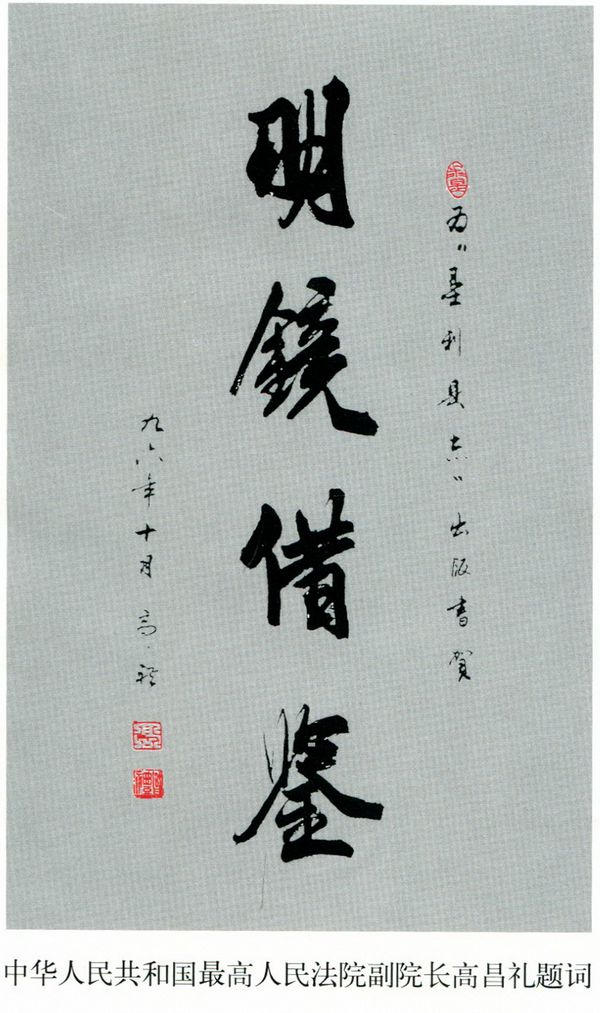 为"垦利县志"出版书贺
明鏡借鉴
九六年十月 高昌礼
中华人民共和国最高人民法院副院长高昌礼题词